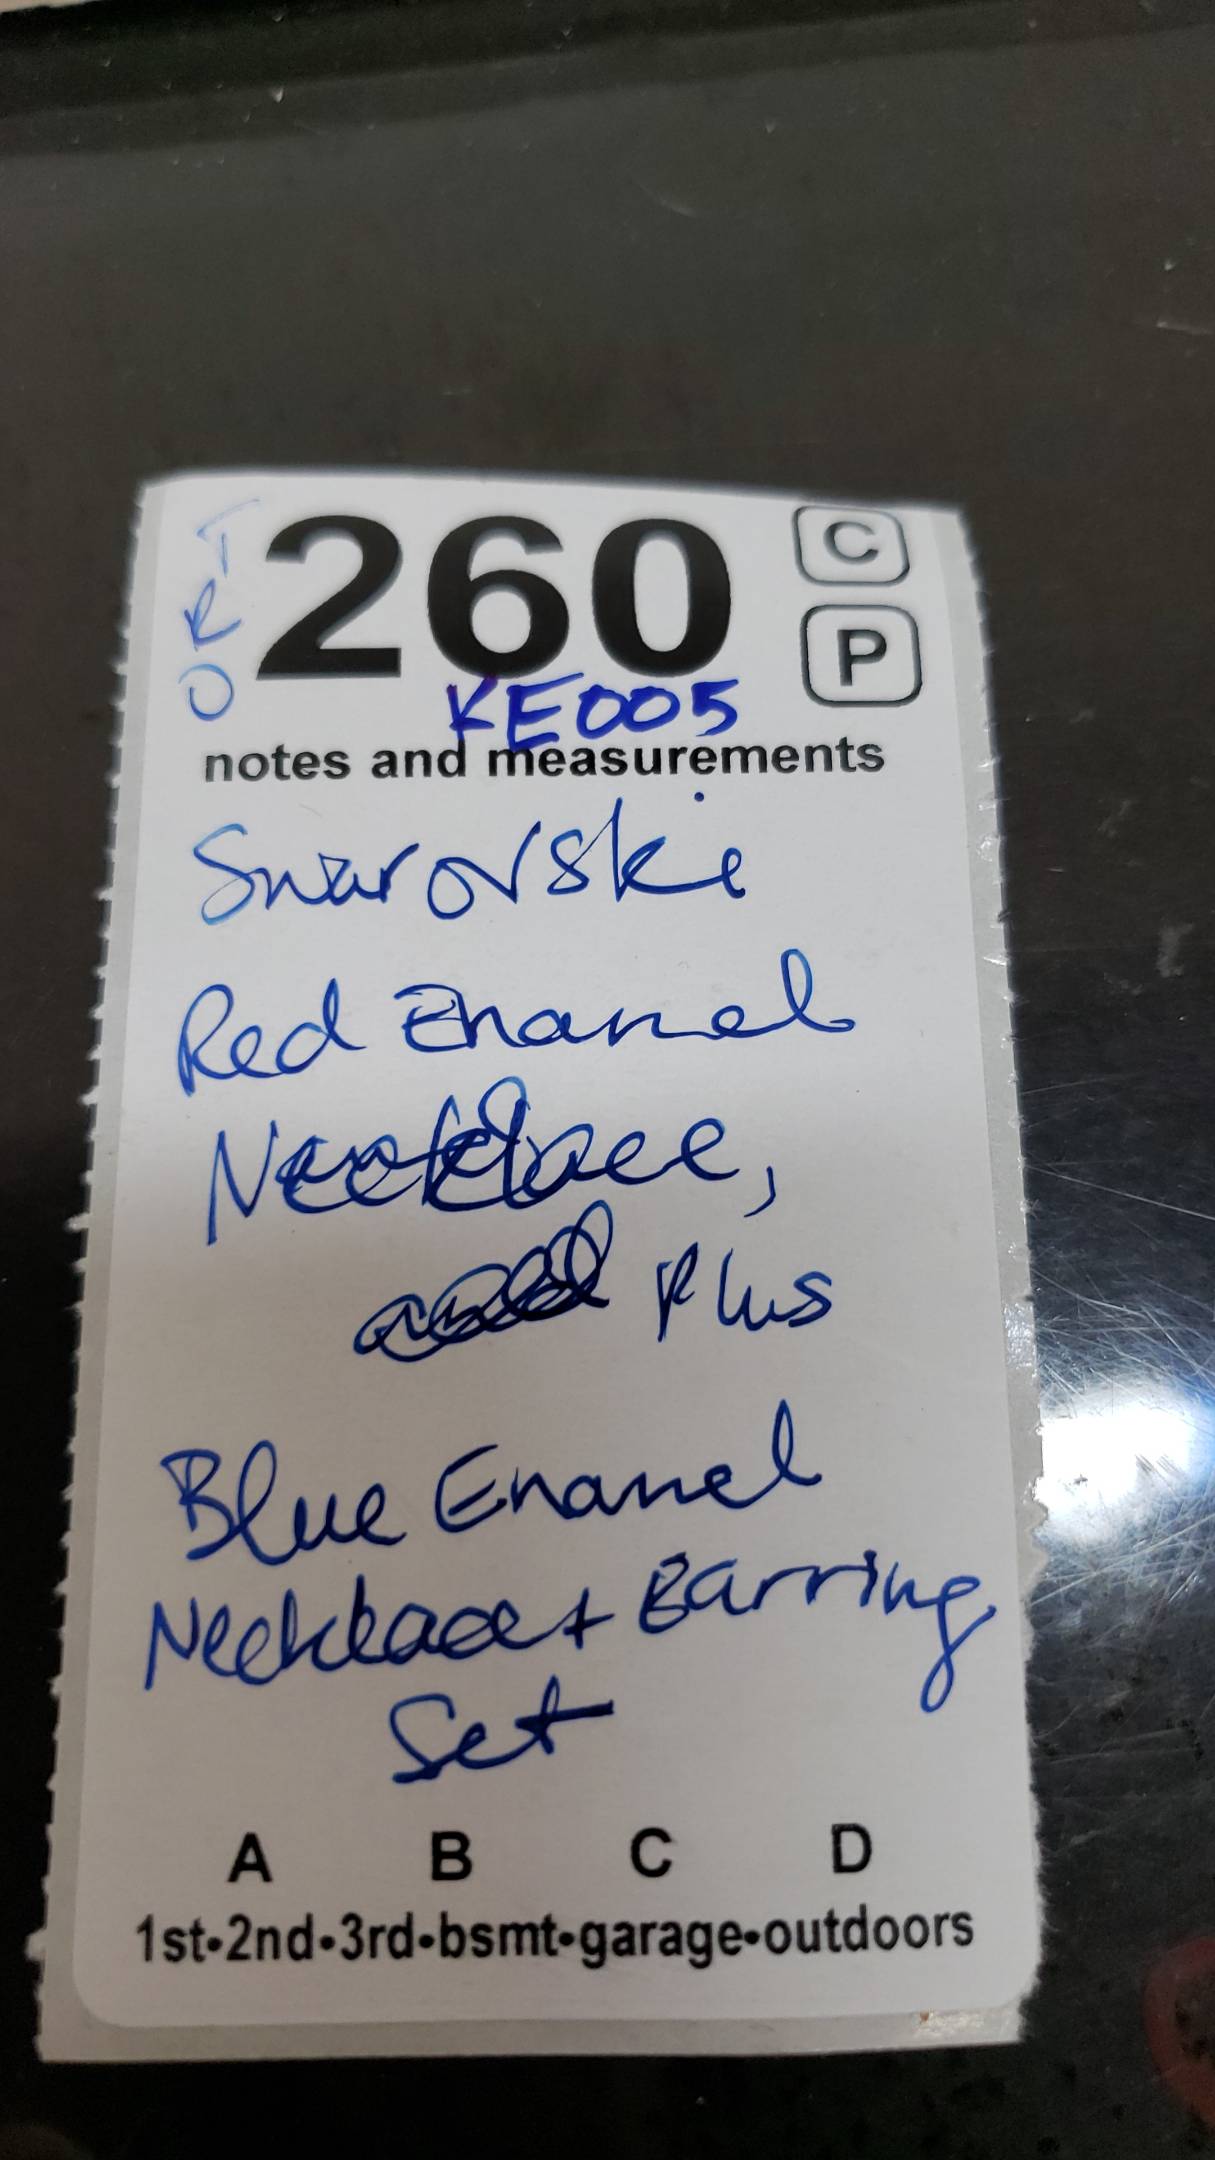 ORT
260
C
P
KE005
notes and measurements
Swarovski
Red Enamel
Necklace,
Plus
Blue Enamel
Necklace + Earring
Set
A B C D
1st•2nd•3rd•bsmt•garage•outdoors